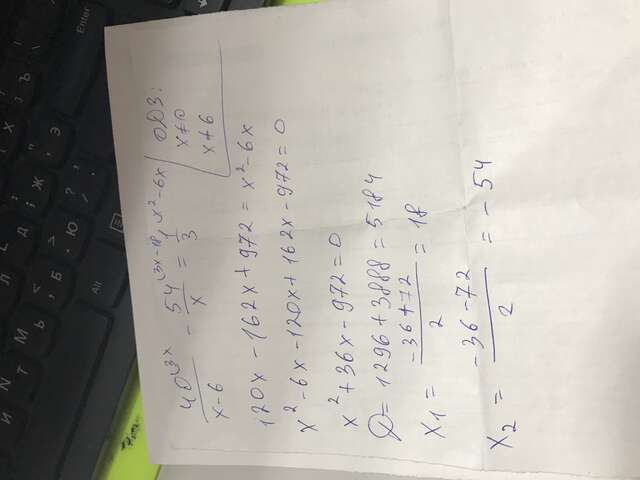 40^{3x}/(x-6) - 54^{(3x-18)}/x = 1/3^{x²-6x} | ОДЗ:
x≠0
x≠6
120x-162x+972=x²-6x
x²-6x-120x+162x-972=0
x²+36x-972=0
D=1296+3888=5184
x₁ = (-36+72)/2 = 18
x₂ = (-36-72)/2 = -54
Enter
Alt